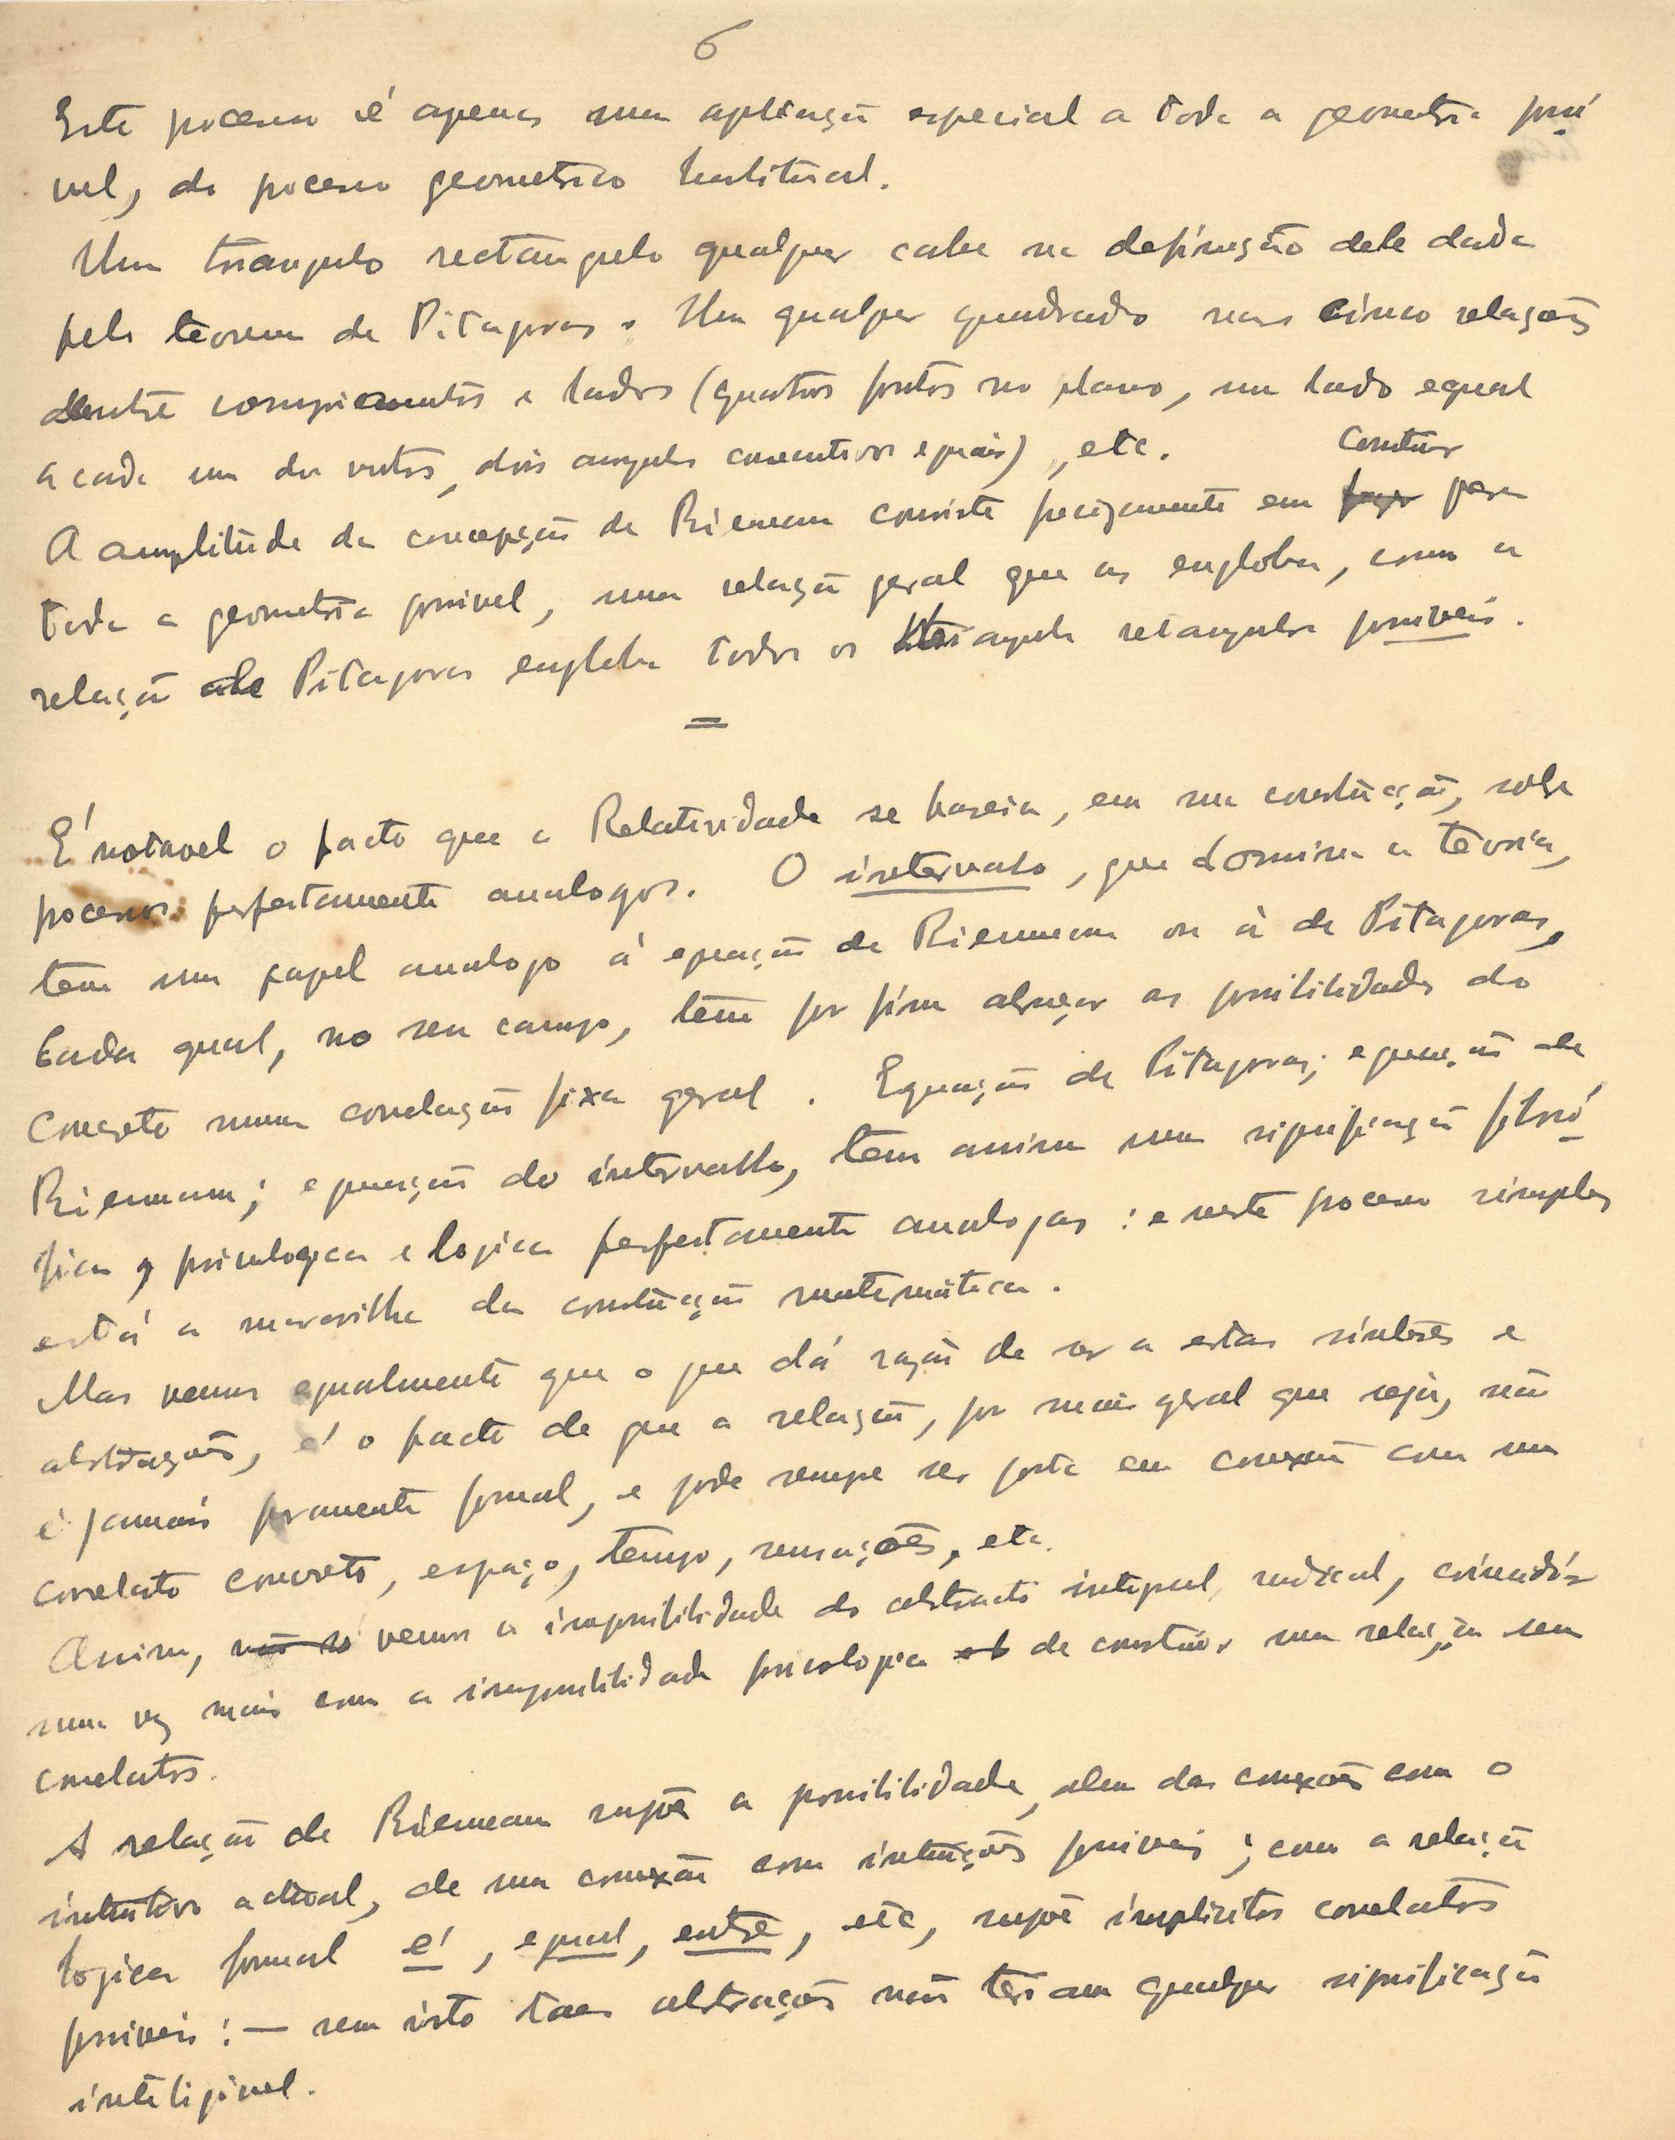 6
Este processo é apenas uma aplicação especial a toda a geometria possi
vel, do processo geometrico habitual.
Um triangulo rectangulo qualquer cabe na definição dele dada
pelo teorema de Pitagoras. Um qualquer quadrado nas cinco relações
dentre comprimentos e lados (quatro pontos no plano, um lado egual
a cada um dos outros, dois angulos consecutivos eguais), etc.
construir
A amplitude da concepção de Riemann consiste precizamente em para
toda a geometria possivel, uma relação geral que as engloba, como a
relação de Pitagoras engloba todos os triangulos retangulos possiveis.
=
É notavel o facto que a Relatividade se baseia, em sua construção, sobre
processos perfeitamente analogos. O intervalo, que domina a teoria,
tem um papel analogo á equação de Riemann ou à de Pitagoras,
Cada qual, no seu campo, têm por fim abraçar as possibilidades do
Concreto numa correlação fixa geral. Equação de Pitagoras; equação de
Riemann; equação do intervallo, tem assim uma significação filosó
fica, psicologica e logica perfeitamente analogas: e neste processo simples
está a maravilha da construção matemática.
Mas vemos egualmente que o que dá razão de ser a estas sínteses e
abstrações, é o facto de que a relação, por mais geral que seja, não
é jamais puramente formal, e pode sempre ser posta em conexão com um
correlato concreto, espaço, tempo, sensações, etc.
Assim, vemos a impossibilidade do abstracto integral, radical, coincidir
uma vez mais com a impossibilidade psicologica de construir uma relação sem
correlatos.
A relação de Riemann supõe a possibilidade, alem das conexões com o
intuitivo actual, de uma conexão com intuições possiveis; com a relação
logica formal é, egual, entre, etc, supõe implicitos correlatos
possiveis: — sem isto taes abstrações não teriam qualquer significação
inteligivel.